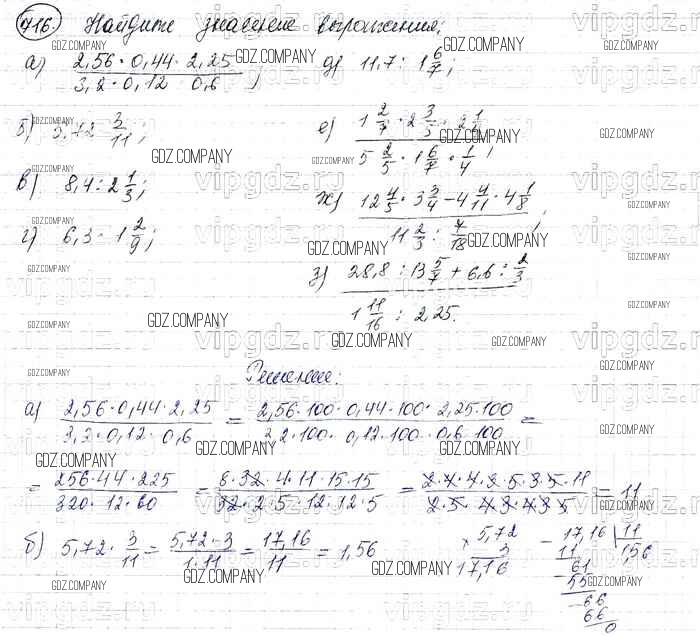 716. Найдите значение выражения:
а) 2,56 · 0,44 · 2,25 / 3,2 · 0,12 · 0,6 ; д) 11,7 : 1 6/7;
б) 5,72 · 3/11; е) 1 2/7 · 2 3/5 · 2 1/ / 5 2/5 · 1 6/7 · 1/4 ;
в) 8,4 : 2 1/3; ж) 12 4/5 · 3 3/4 - 4 4/11 · 4 1/8 / 11 2/3 : 7/18 ;
г) 6,3 · 1 2/9; з) 28,8 : 13 5/7 + 6,6 : 2/3 / 1 11/16 : 2,25.
Решение:
а) 2,56·0,44·2,25 / 3,2·0,12·0,6 = 2,56·100·0,44·100·2,25·100 / 3,2·100·0,12·100·0,6·100 =
= 256·44·225 / 320·12·60 = 8·32·4·11·15·15 / 32·2·5·12·12·5 = 2·4·4·2·5·3·5·11 / 2·5·4·3·4·3·5 = 11
б) 5,72 · 3/11 = 5,72·3 / 1·11 = 17,16 / 11 = 1,56
× 5,72
3
17,16
- 17,16 | 11
11 1,56
61
- 55
- 66
66
0
GDZ.COMPANY
vipgdz.ru